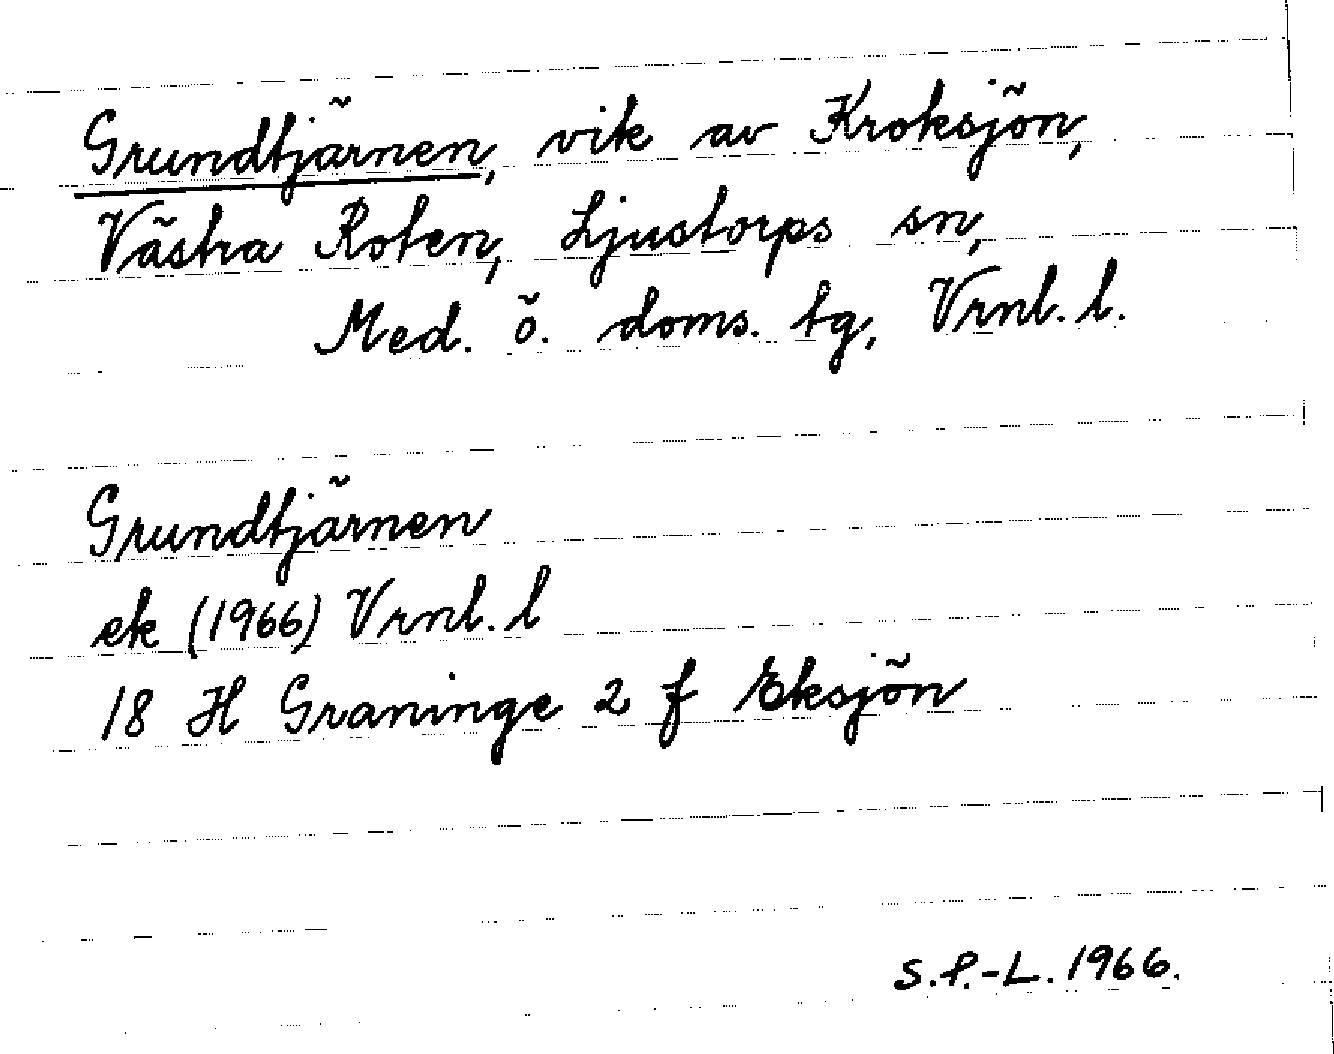 Grundtjärnen, vik av Kroksjön,
Västra Roten, Ljustorps sn,
Med. ö. doms. tg, Vrnl. l.
Grundtjärnen
ek (1966) Vrnl. l
18 H Graninge 2 f Eksjön
S.P.-L. 1966.